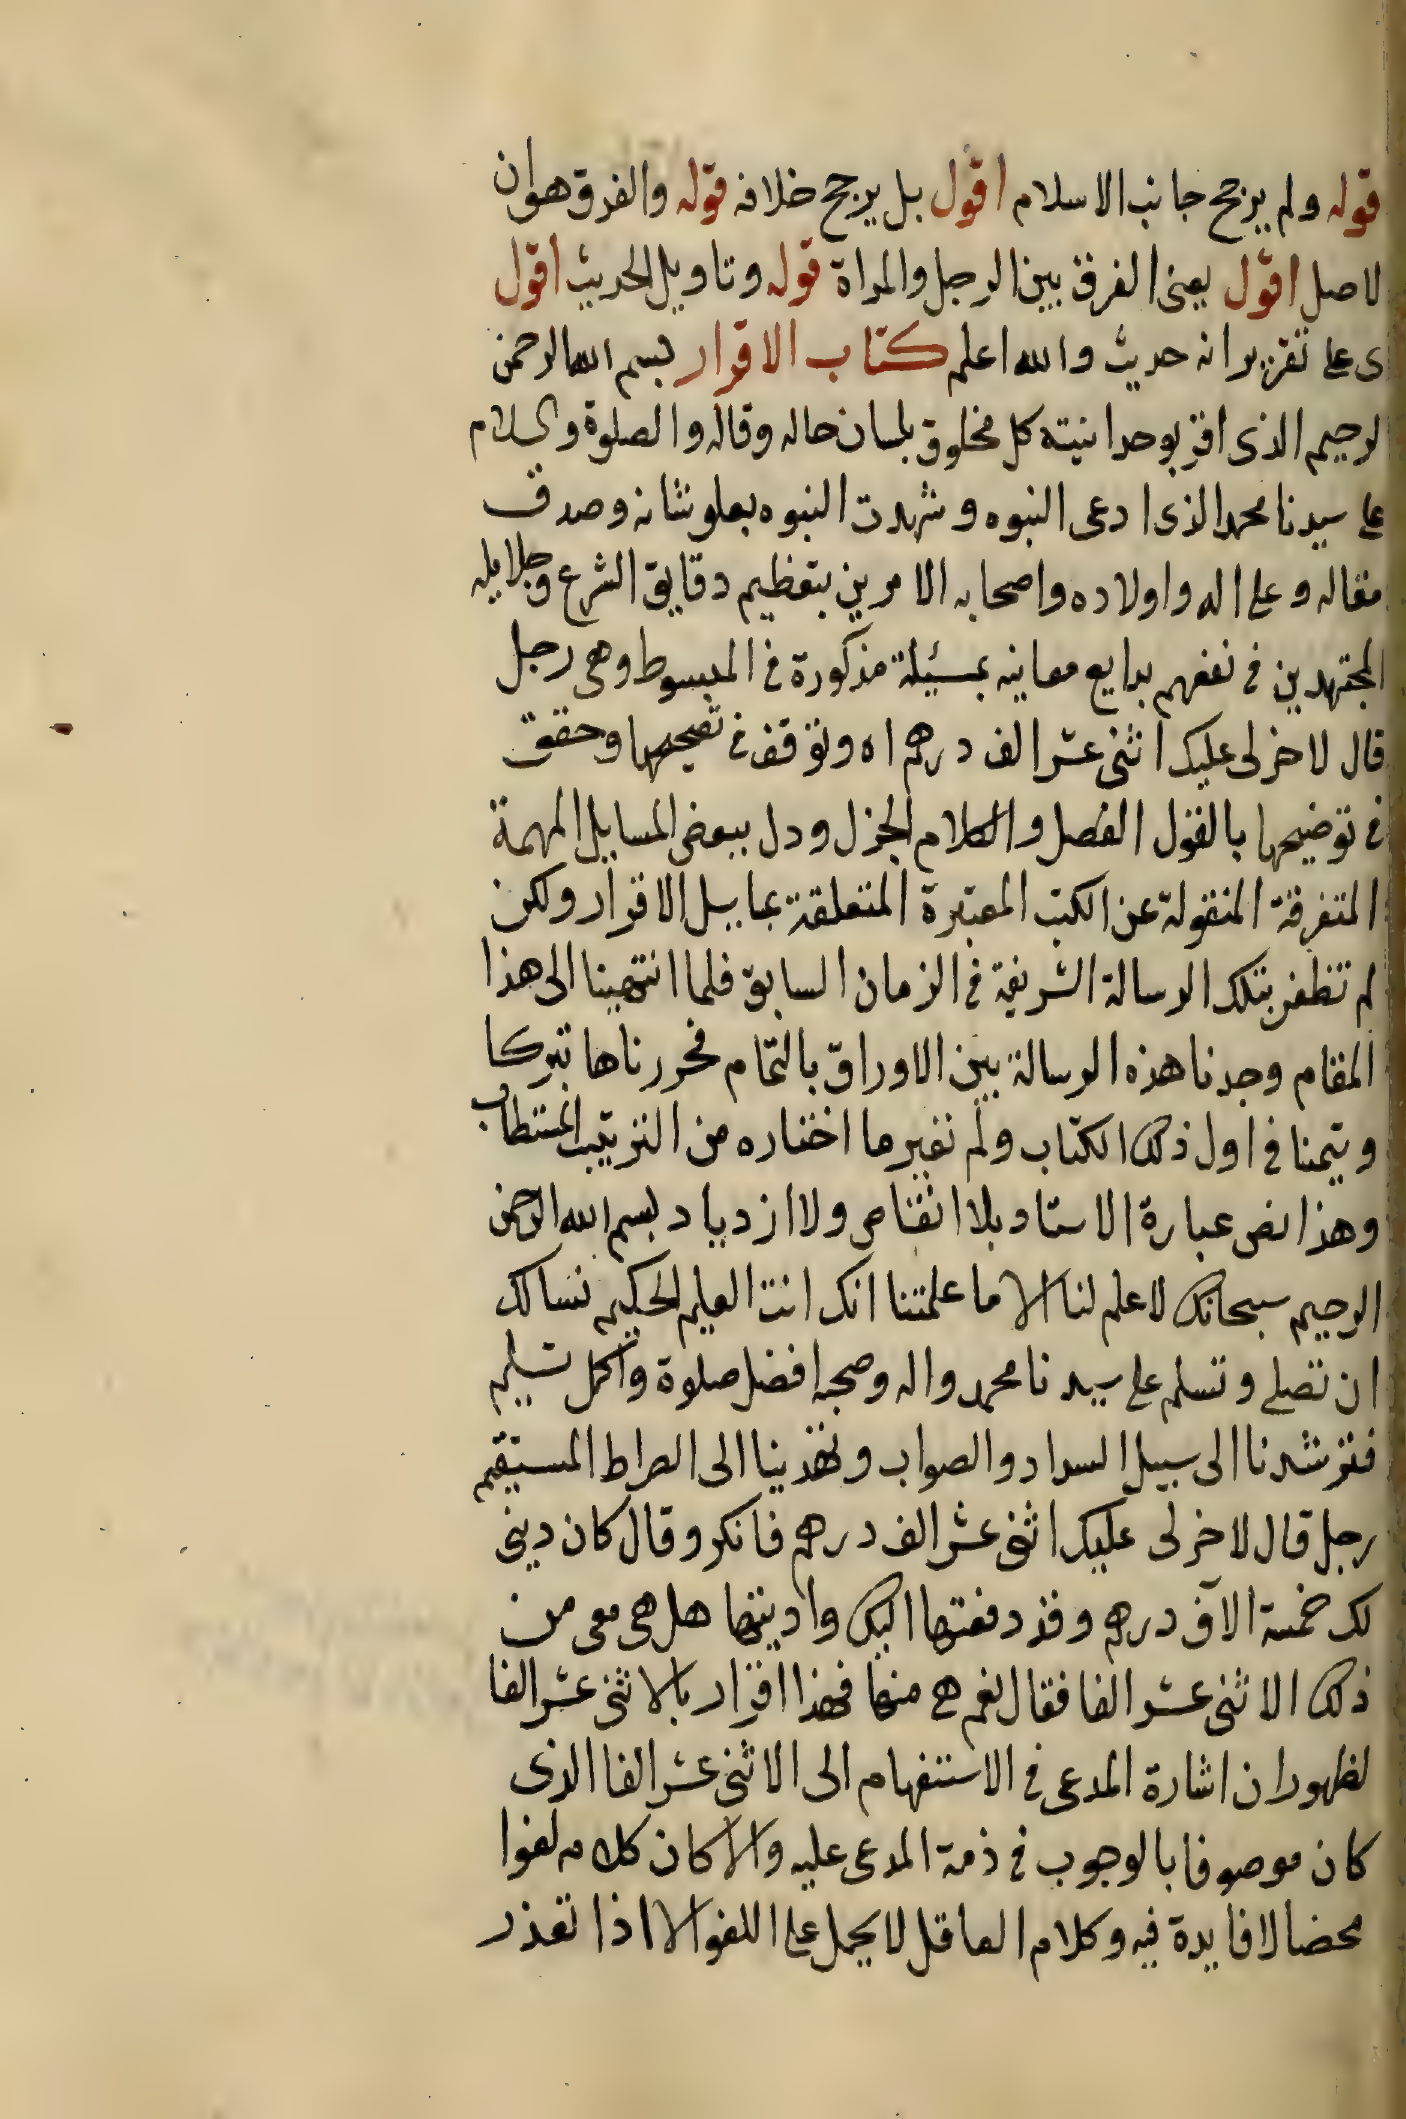 قوله ولم يرجح جانب الاسلام اقول بل يرجح خلافه قوله والفرق هو ان
لاصل اقول يعنى الفرق بين الرجل والمراة قوله وتاويل الحديث اقول
ى على تقرير انه حديث والله اعلم كتاب الاقرار بسم الله الرحمن
لرحيم الذى اقر بوحدانيته كل مخلوق بلسان حاله وقاله والصلوة والسلام
على سيدنا محمد الذى ادعى النبوه وشهدت النبوه بعلو شانه وصدق
مقاله وعلى اله واولاده واصحابه الامرين بتعظيم دقايق الشرع وجلايله
المجتهدين فى تفهم بدايع معاينه بمسئيلة مذكورة فى المبسوط وهى رجل
قال لاخر لى عليك اثنى عشر الف درهم اه وتوقف فى تصحيحها وحقق
فى توضيحها بالقول الفصل والكلام الجزل ودل ببعض المسايل المهمة
المتفرقة المنقولة عن الكتب المعتبرة المتعلقة بمايبل الاقرار ولكن
لم تظفر بتلك الرسالة الشريفة فى الزمان السابق فلما انتهينا الى هذا
المقام وجدنا هذه الرسالة بين الاوراق بالتمام فحررناها تبركا
ويتمنا فى اول ذلك الكتاب ولم نغير ما اختاره من الترتيب المستطاب
وهذا نص عبارة الاستاد بلا انقناص ولا ازدياد بسم الله الرحمن
الرحيم سبحانك لا علم لنا الا ما علمتنا انك انت العليم الحكيم نسالك
ان تصلى وتسلم على سيدنا محمد واله وصحبه افضل صلوة واكمل تسليم
فترشدنا الى سبيل السداد والصواب وتهدينا الى الصراط المستقيم
رجل قال لاخر لى عليك اثنى عشر الف درهم فانكر وقال كان دينى
لك خمسة الاف درهم وقد دفعتها اليك واديتها هل هى معى من
ذلك الاثنى عشر الفا فقال نعم هى منها فهذا اقرار بالاثنى عشر الفا
لظهور ان اشارة المدعى فى الاستفهام الى الاثنى عشر الفا الذى
كان موصوفا بالوجوب فى ذمة المدعى عليه والا كان كلامه لغوا
محضا لا فايدة فيه وكلام العاقل لا يحمل على اللغو الا اذا تعذر